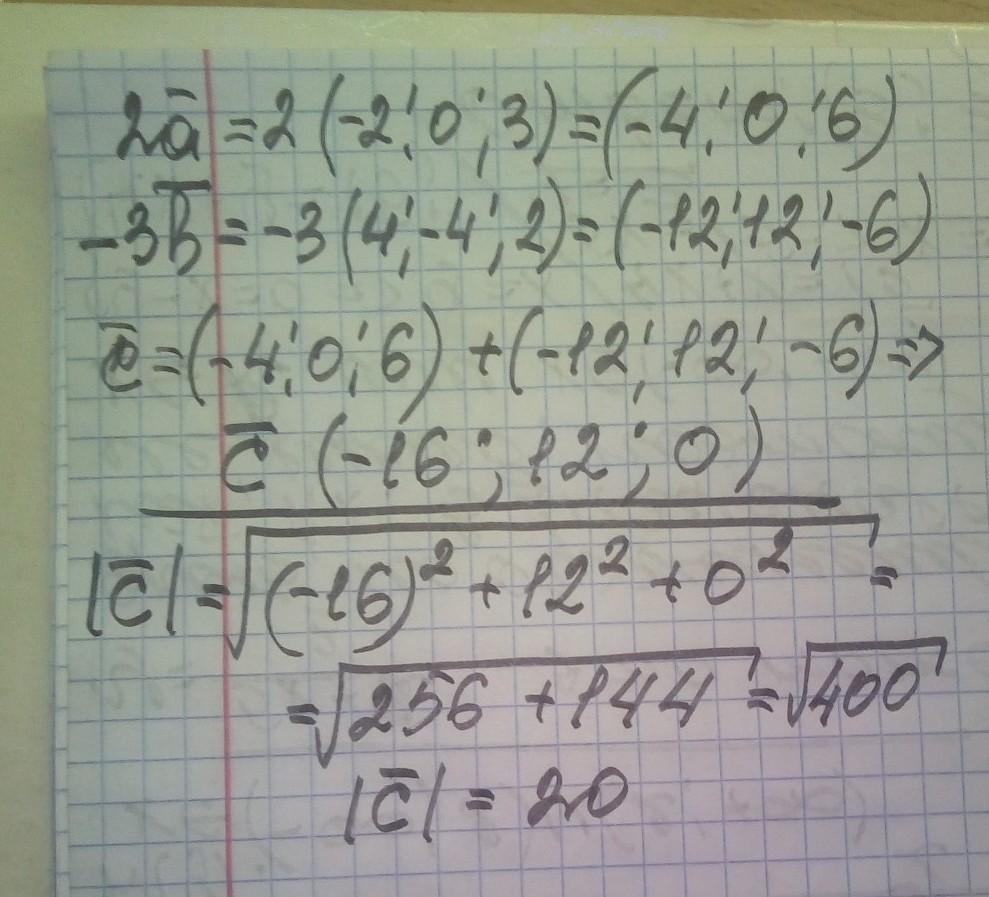 2a̅ = 2 (-2; 0; 3) = (-4; 0; 6)
-3b̅ = -3 (4; -4; 2) = (-12; 12; -6)
c̅ = (-4; 0; 6) + (-12; 12; -6) =>
c̅ (-16; 12; 0)
|c̅| = √((-16)² + 12² + 0²) =
= √(256 + 144) = √400
|c̅| = 20